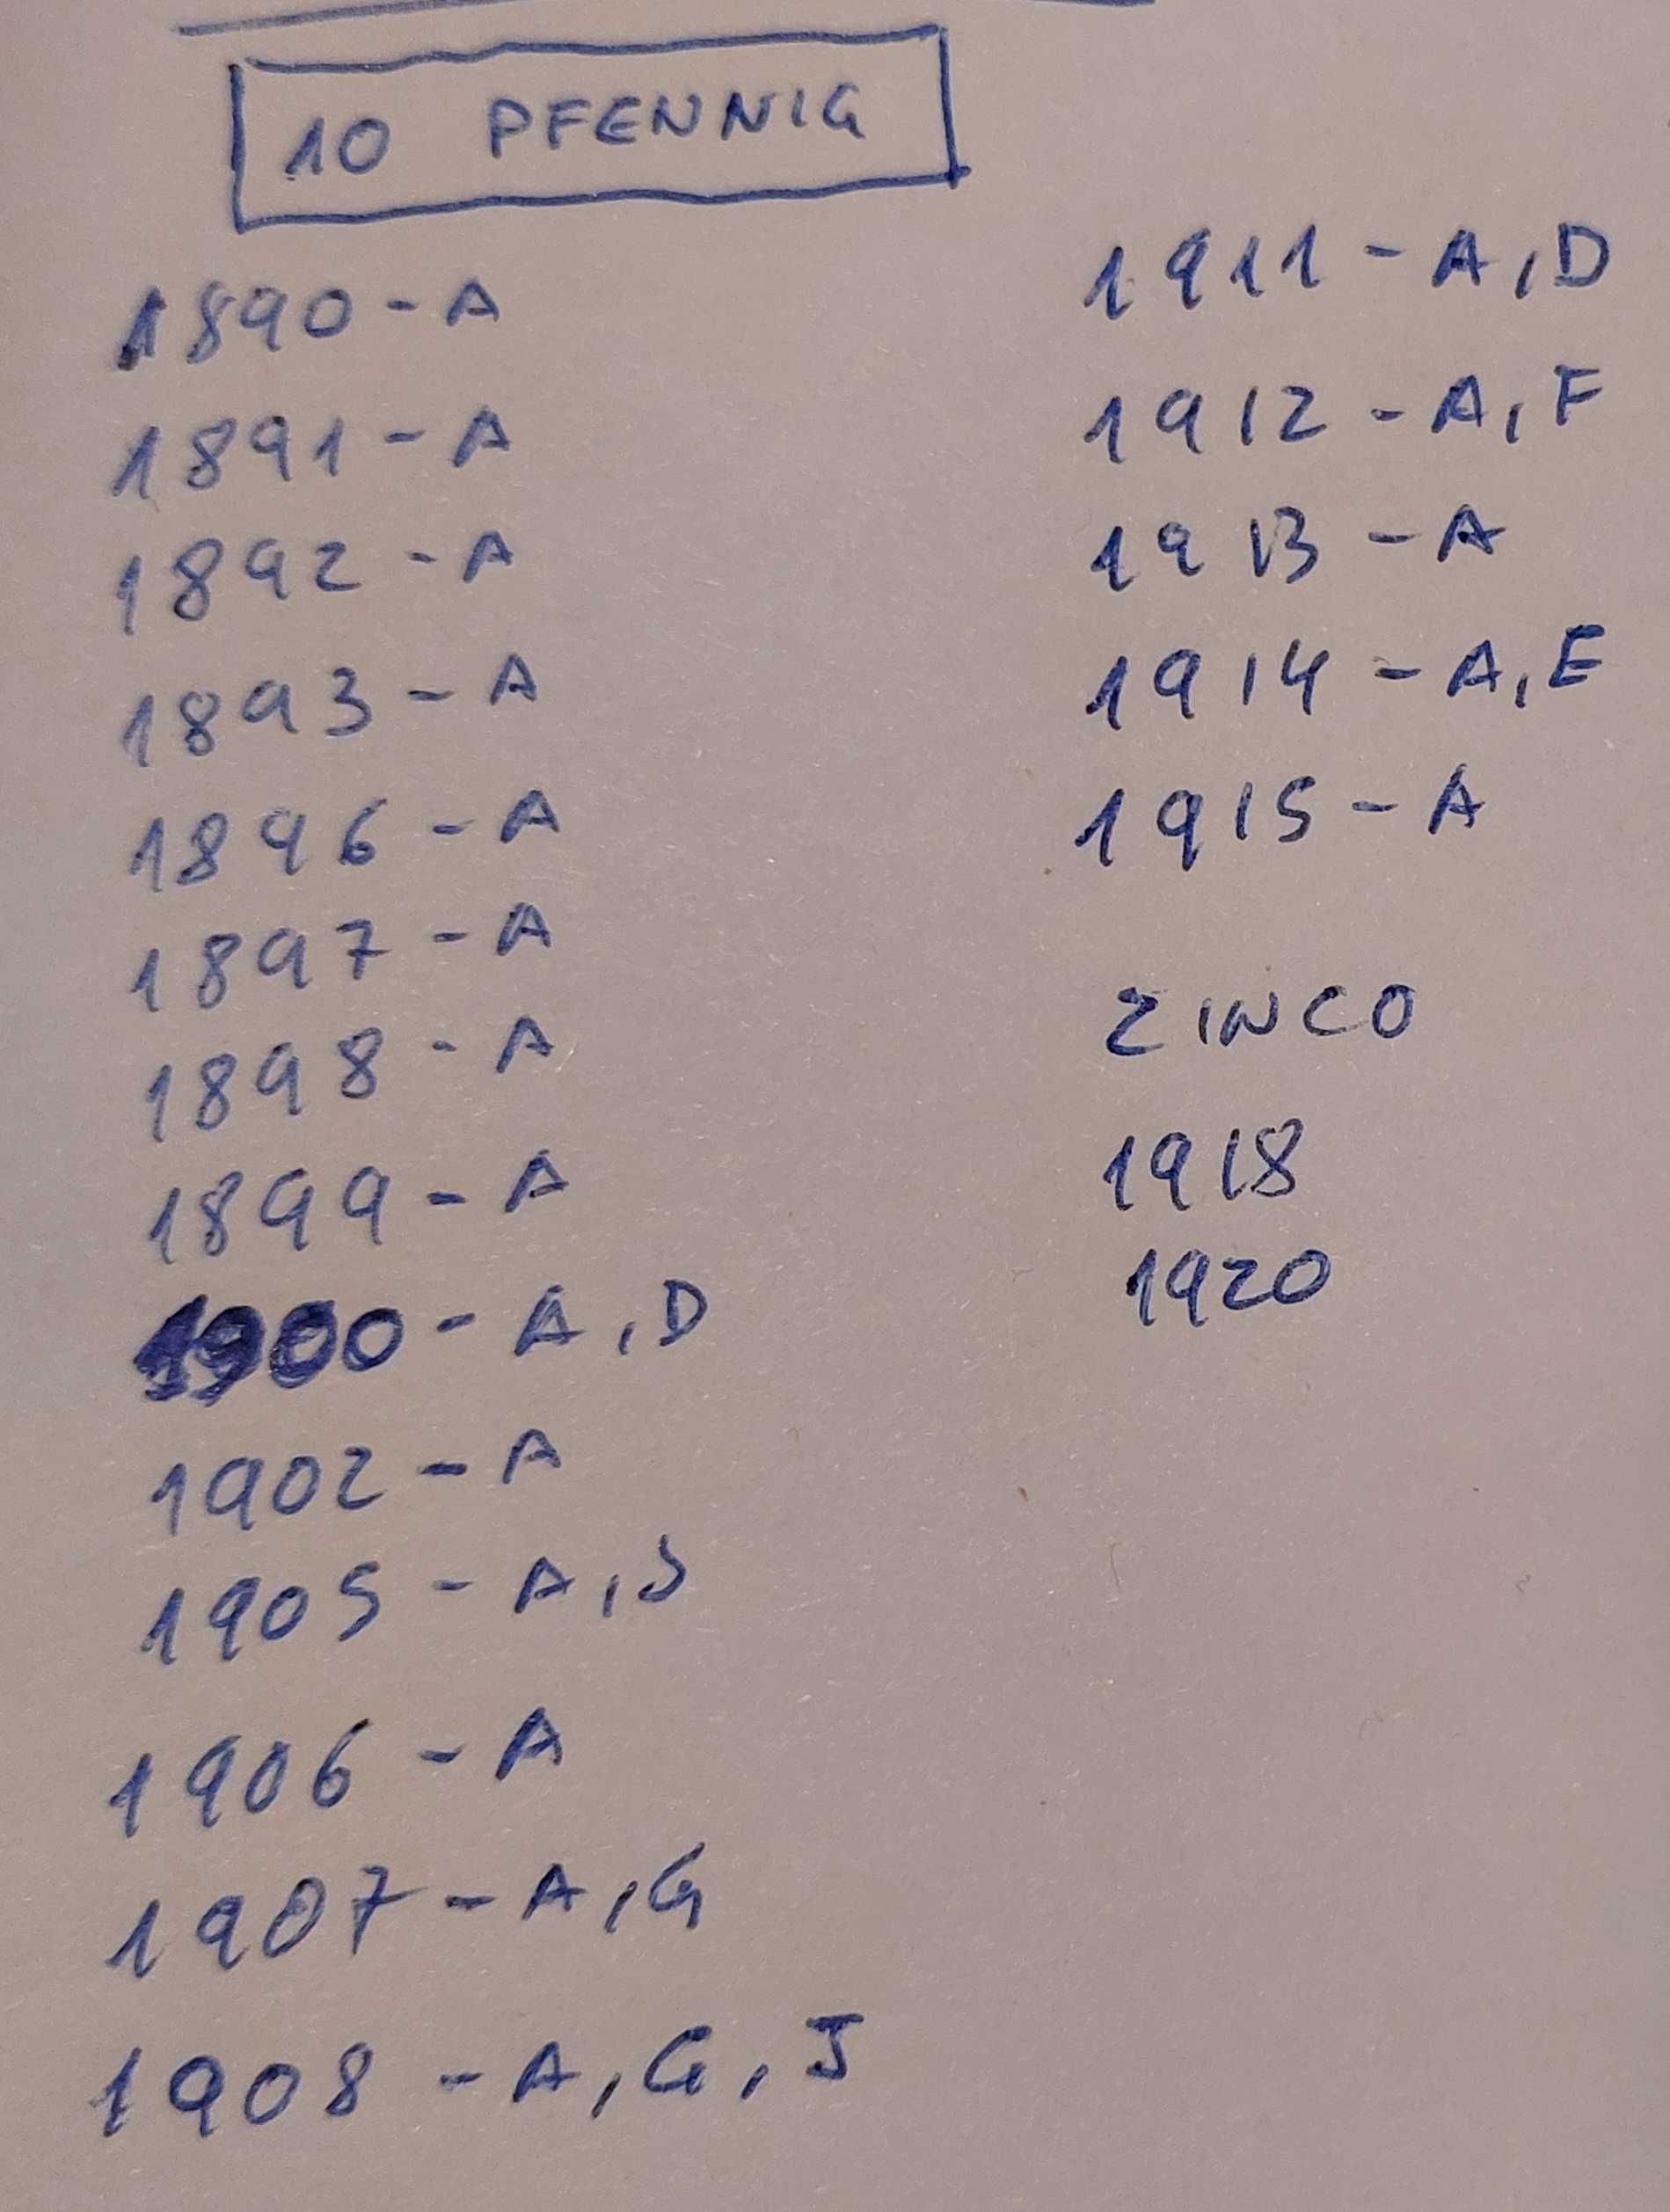 10 PFENNIG
1890 - A
1891 - A
1892 - A
1893 - A
1896 - A
1897 - A
1898 - A
1899 - A
1900 - A, D
1902 - A
1905 - A, J
1906 - A
1907 - A, G
1908 - A, G, J
1911 - A, D
1912 - A, F
1913 - A
1914 - A, E
1915 - A
ZINCO
1918
1920